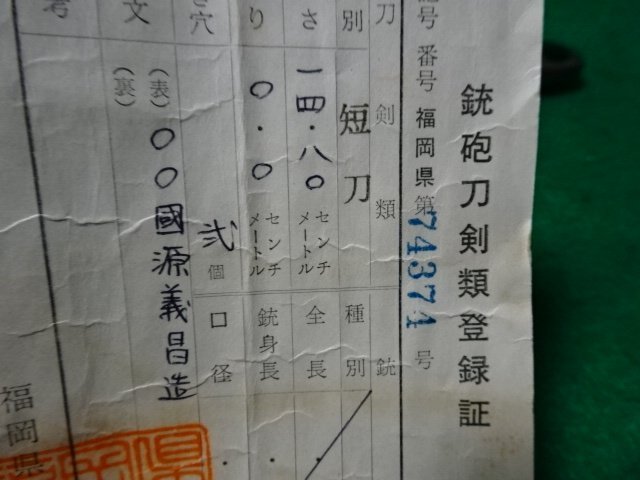 銃砲刀剣類登録証
記号番号 福岡県第 74371 号
刀剣類
銃
別 短刀
種別
さ 一四.八〇 センチメートル
全長
り 〇.〇 センチメートル
銃身長
穴 弐 個
口径
文 (表) 〇〇國源義昌造
(裏)
考
福岡県